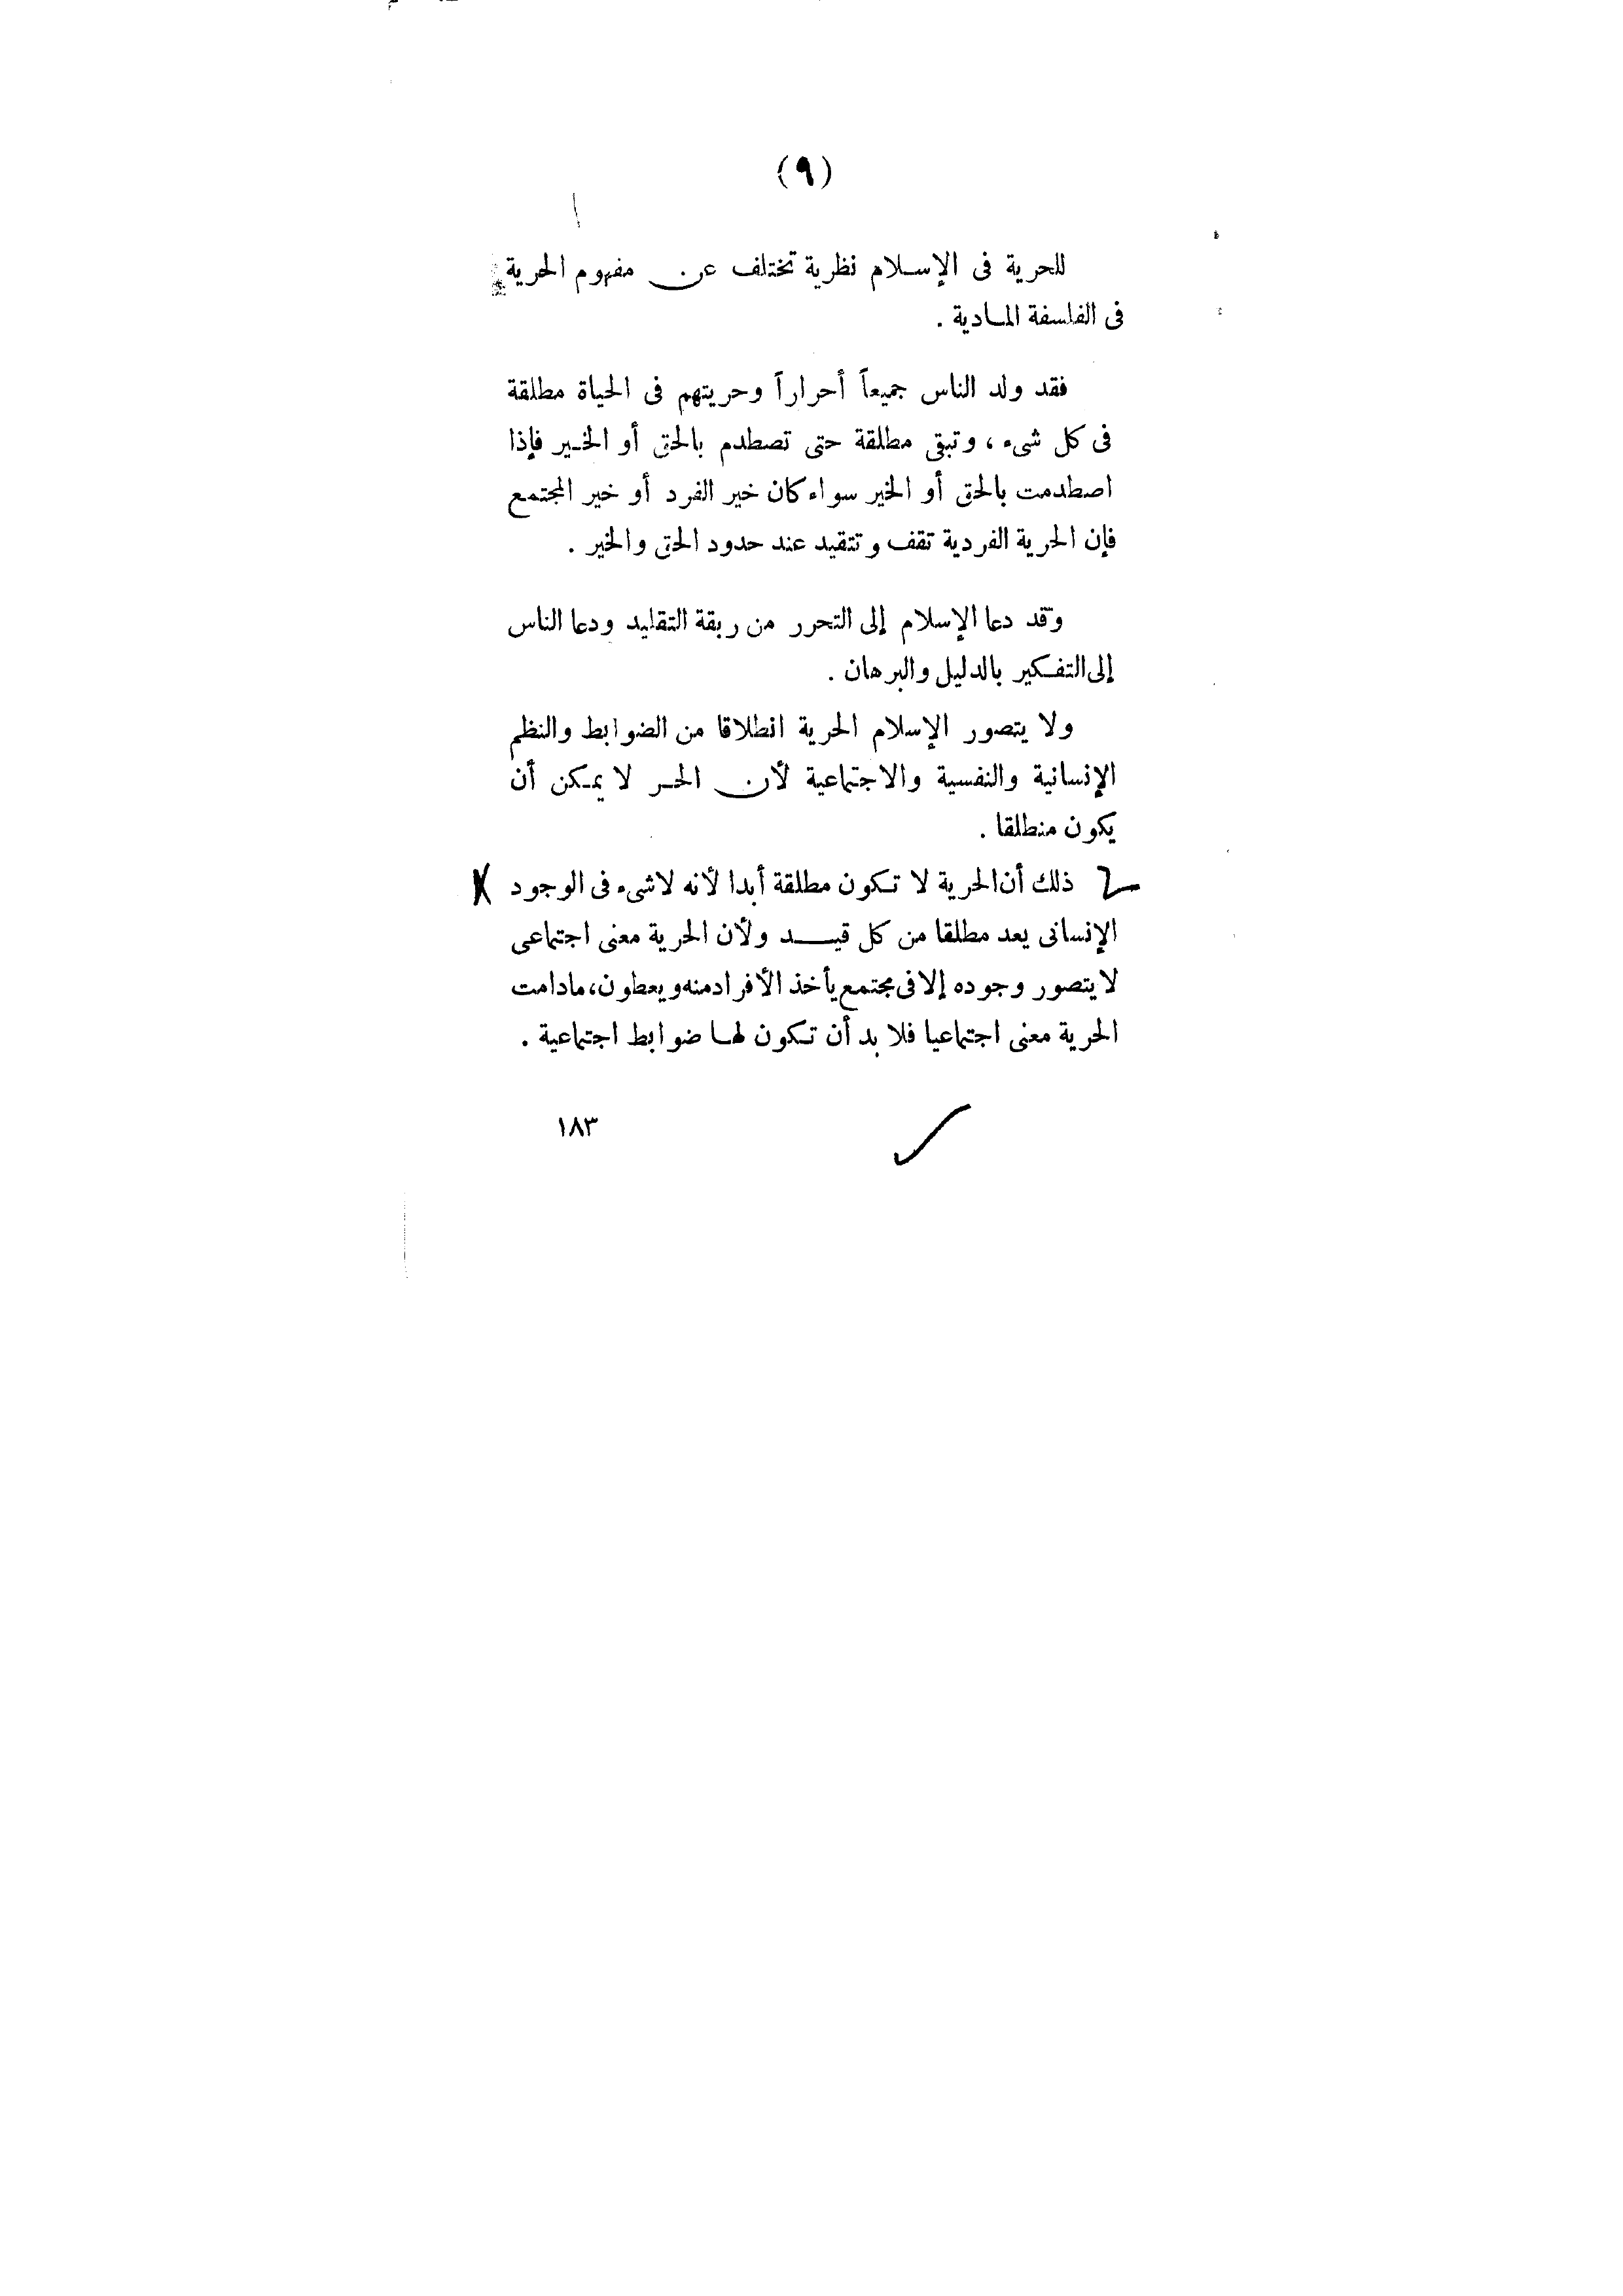 (٩)
للحرية فى الإسلام نظرية تختلف عن مفهوم الحرية
فى الفلسفة المادية .
فقد ولد الناس جميعاً أحراراً وحريتهم فى الحياة مطلقة
فى كل شىء ، وتبقى مطلقة حتى تصطدم بالحق أو الخير فإذا
اصطدمت بالحق أو الخير سواء كان خير الفرد أو خير المجتمع
فإن الحرية الفردية تقف وتتقيد عند حدود الحق والخير .
وقد دعا الإسلام إلى التحرر من ربقة التقليد ودعا الناس
إلى التفكير بالدليل والبرهان .
ولا يتصور الإسلام الحرية انطلاقا من الضوابط والنظم
الإنسانية والنفسية والاجتماعية لأن الحر لا يمكن أن
يكون منطلقا .
ذلك أن الحرية لا تكون مطلقة أبدا لأنه لاشىء فى الوجود
الإنسانى يعد مطلقا من كل قيد ولأن الحرية معنى اجتماعى
لا يتصور وجوده إلا فى مجتمع يأخذ الأفراد منه ويعطون، مادامت
الحرية معنى اجتماعيا فلا بد أن تكون لها ضوابط اجتماعية .
١٨٣